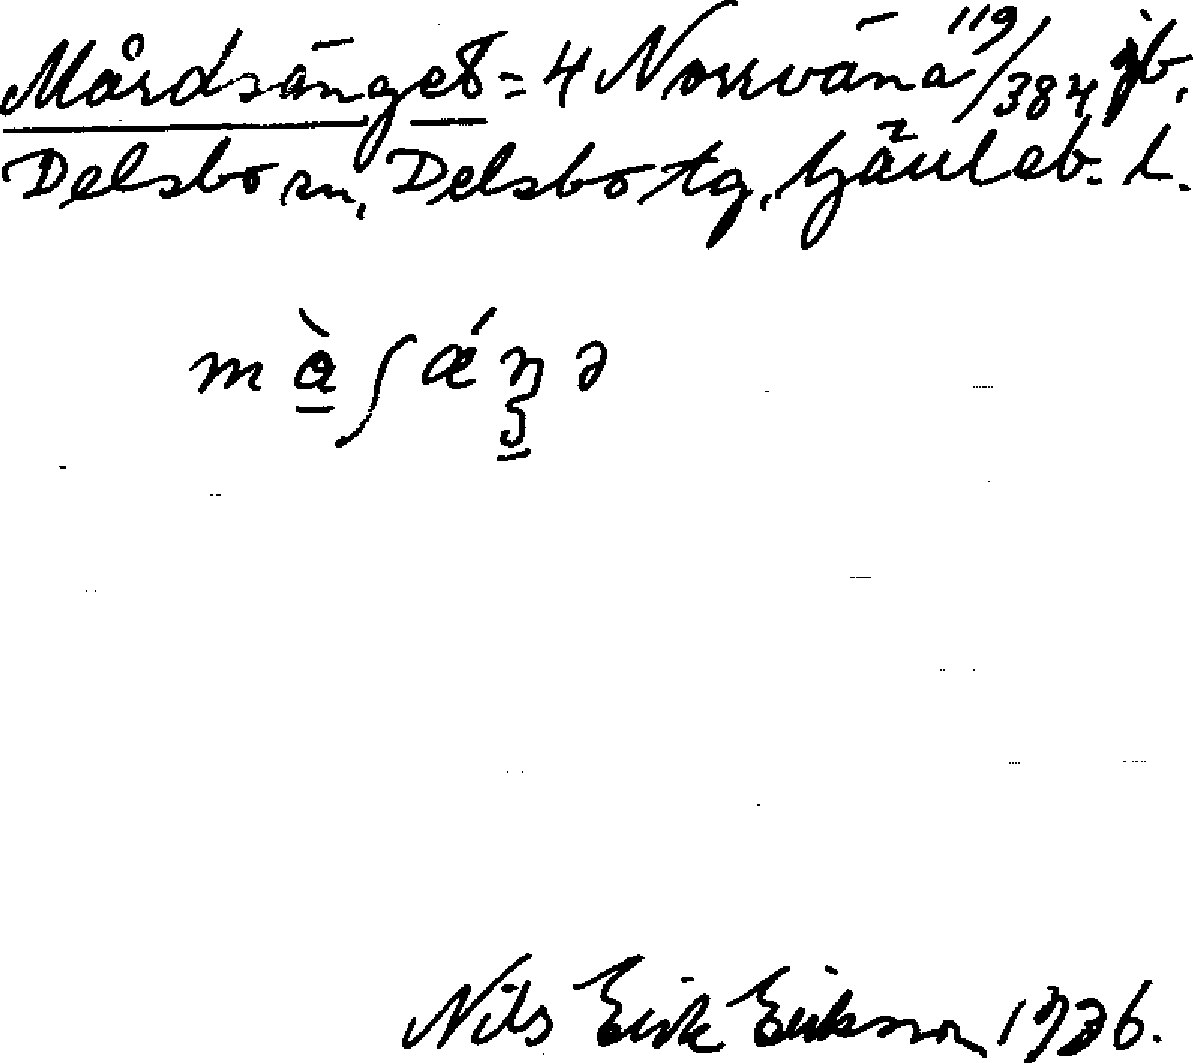 Mårdsänget = 4 Norrväna 119/384 jb.
Delsbo sn, Delsbo tg, Gävleb. l.
Nils Erik Eriksson 1926.